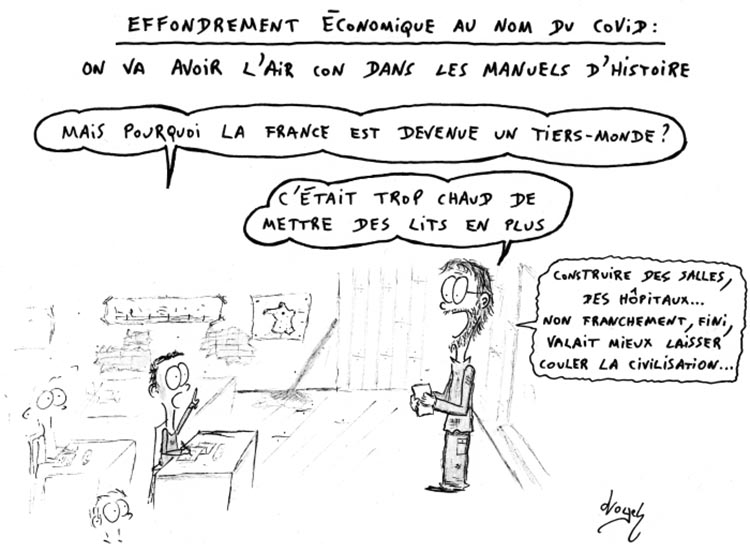 EFFONDREMENT ÉCONOMIQUE AU NOM DU COVID :
ON VA AVOIR L'AIR CON DANS LES MANUELS D'HISTOIRE
MAIS POURQUOI LA FRANCE EST DEVENUE UN TIERS-MONDE ?
C'ÉTAIT TROP CHAUD DE
METTRE DES LITS EN PLUS
CONSTRUIRE DES SALLES,
DES HÔPITAUX...
NON FRANCHEMENT, FINI,
VALAIT MIEUX LAISSER
COULER LA CIVILISATION...